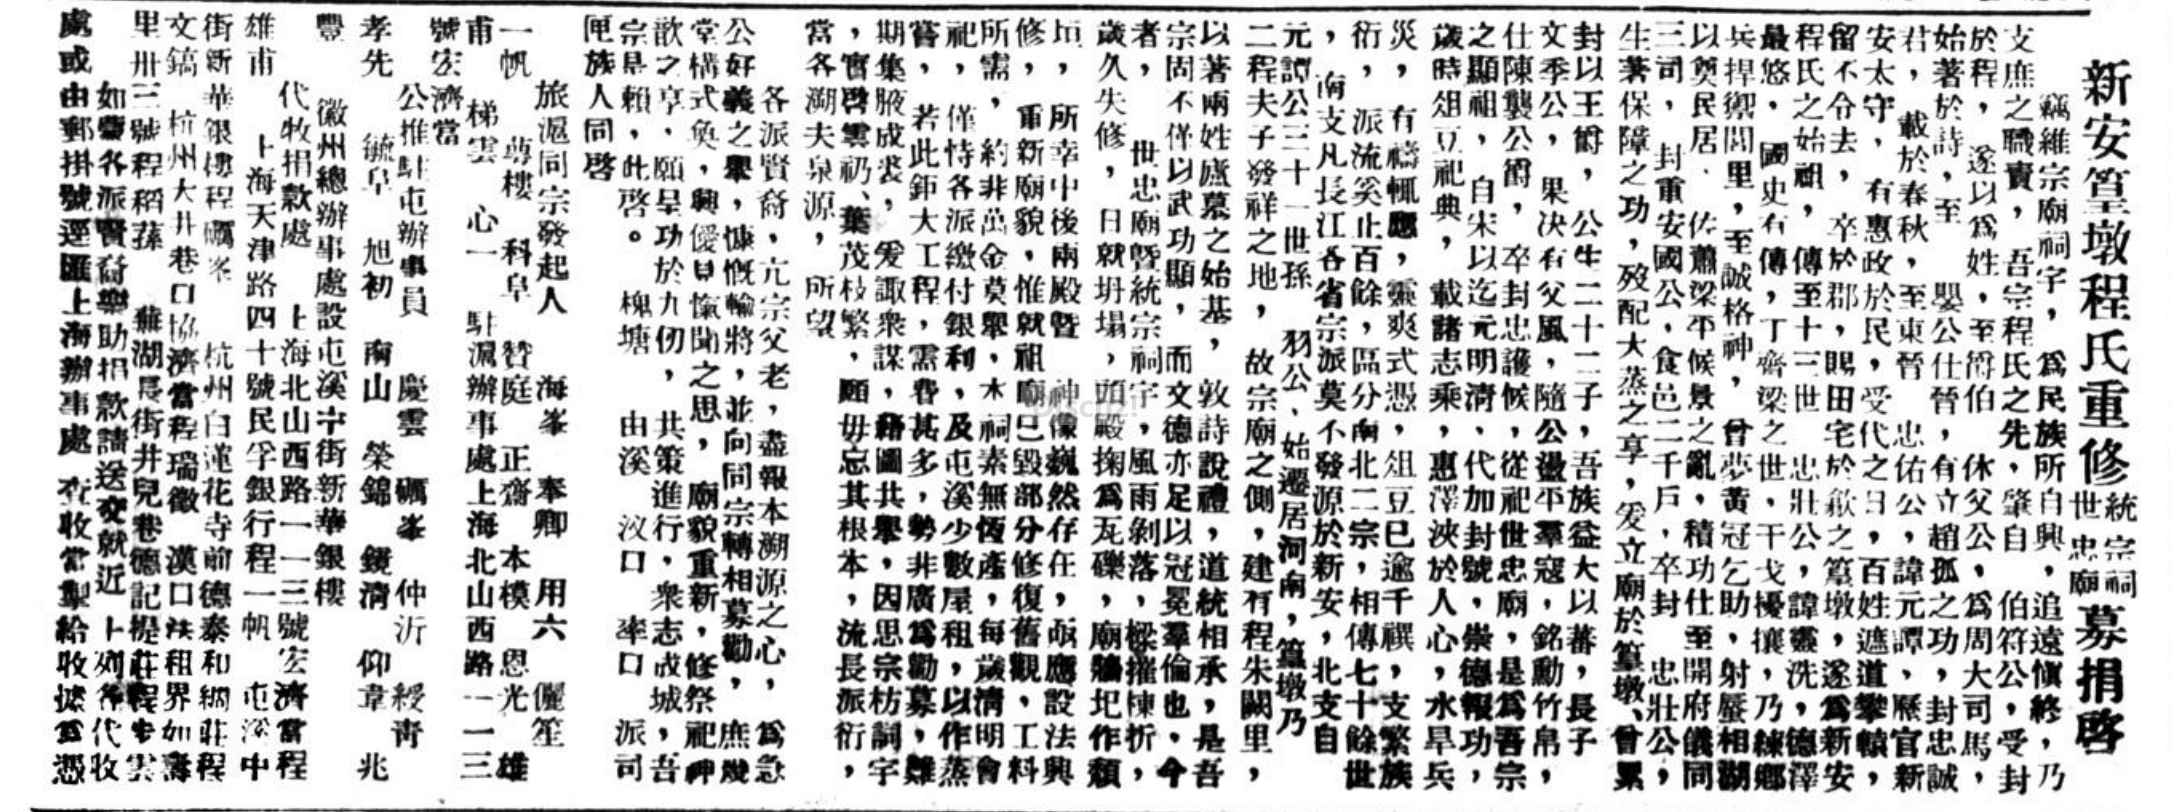 新安篁墩程氏重修統宗祠世忠廟募捐啓
竊維宗廟祠宇，爲民族所自興，追遠愼終，乃
支庶之職責，吾宗程氏之先，肇自　伯符公，受封
於程，遂以爲姓，至爵伯　休父公，爲周大司馬，
始著於詩，至　嬰公仕晉，有立趙孤之功，封忠誠
君，載於春秋，至東晉　忠佑公，諱元譚，歷官新
安太守，有惠政於民，受代之日，百姓遮道攀轅，
留不令去，卒於郡，賜田宅於歙之篁墩，遂爲新安
程氏之始祖，傳至十三世　忠壯公，諱靈洗，德澤
最悠，國史有傳，丁齊梁之世，干戈擾攘，乃練鄉
兵捍禦閭里，至誠格神，曾夢黃冠乞助，射蜃相湖
以奠民居．佐蕭梁平候景之亂，積功仕至開府儀同
三司，封重安國公，食邑二千戶，卒封　忠壯公，
生著保障之功，歿配大蒸之享，爰立廟於篁墩、曾累
封以王爵，公生二十二子，吾族益大以蕃，長子
文季公，果決有父風，隨公盪平羣寇，銘勳竹帛，
仕陳襲公爵，卒封忠護候，從祀世忠廟，是爲吾宗
之顯祖，自宋以迄元明淸、代加封號，崇德報功，
歲時俎豆祀典，載諸志乘，惠澤浹於人心，水旱兵
災，有禱輒應，靈爽式憑，俎豆已逾千禩，支繁族
衍，派流奚止百餘，區分南北二宗，相傳七十餘世
，南支凡長江各省宗派莫不發源於新安，北支自
元譚公三十一世孫　羽公、始遷居河南，篁墩乃
二程夫子發祥之地，故宗廟之側，建有程朱闕里，
以著兩姓廬墓之始基，敦詩說禮，道統相承，是吾
宗固不僅以武功顯，而文德亦足以冠冕羣倫也．今
者，世忠廟曁統宗祠宇，風雨剝落，樑摧棟折，
歲久失修，日就坍塌，頭殿掬爲瓦礫，廟牆圮作頹
垣，所幸中後兩殿曁　神像巍然存在，亟應設法興
修，重新廟貌，惟就祖廟已毀部分修復舊觀，工料
所需，約非萬金莫舉，本祠素無恆產，每歲淸明會
祀，僅恃各派繳付銀利，及屯溪少數屋租，以作蒸
嘗，若此鉅大工程，需費甚多，勢非廣爲勸募，難
期集腋成裘，爰諏衆謀，藉圖共舉，因思宗枋詞宇
，實啓雲礽、葉茂枝繁，願毋忘其根本，流長派衍，
當各溯夫泉源，所望
各派賢裔，亢宗父老，盡報本溯源之心，爲急
公好義之舉，慷慨輸將，並向同宗轉相募勸，庶幾
堂構式奐，興優見愾聞之思，廟貌重新，修祭祀神
歆之享，願呈功於九仞，共策進行，衆志成城，吾
宗是賴，此啓。　槐塘　由溪　汊口　率口　派司
匣族人同啓
旅滬同宗發起人　海峯　奉卿　用六　儷笙
一帆　蓴樓　科皐　贊庭　正齋　本模　恩光　雄
甫　梯雲　心一　駐滬辦事處上海北山西路一一三
號宏濟當
公推駐屯辦事員　慶雲　礪峯　仲沂　綬靑
孝先　毓阜　旭初　南山　榮錦　鏡淸　仰韋　兆
豐　徽州總辦事處設屯溪中街新華銀樓
代收捐款處　上海北山西路一一三號宏濟當程
雄甫　上海天津路四十號民孚銀行程一帆　屯溪中
街新華銀樓程礪峯　杭州白蓮花寺前德泰和綢莊程
文鎬　杭州大井巷口協濟當程瑞徵　漢口法租界如壽
里卅三號程稻蓀　蕪湖長街井兒巷德記提莊程步雲
如蒙各派賢裔樂助捐款請送交就近上列各代收
處或由郵掛號逕匯上海辦事處　查收當掣給收據爲憑